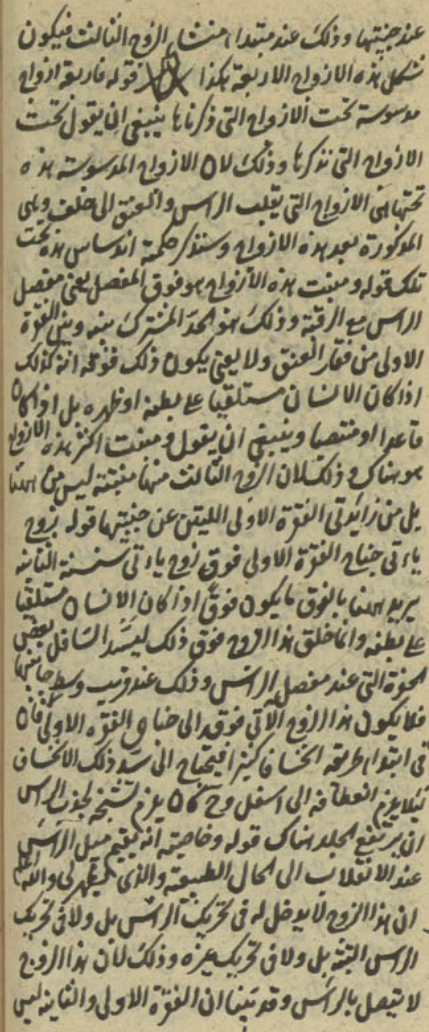 عند جنبتيها وذلك عند مبتداء منشاء الزوج الثالث فيكون
شكل هذه الازواج الاربعة هكذا قوله فاربعة ازواج
مدسوسة تحت الازواج التي ذكرناها ينبغي ان يقول تحت
الازواج التي نذكرها وذلك لان الازواج المدسوسة هذه
تحتها هي الازواج التي تقلب الراس والعنق الى خلف وهي
المذكورة بعد هذه الازواج وسنذكر حكمة اندساس هذه تحت
تلك قوله ومنبت هذه الازواج هو فوق المفصل يعني مفصل
الراس مع الرقبة وذلك هو الحد المشترك بينه وبين الفقرة
الاولى من فقار العنق ولا يعني يكون ذلك فوقه انه كذلك
اذا كان الانسان مستلقيا على بطنه او ظهره بل اذا كان
قاعدا او منتصبا وينبغي ان يقول ومنبت اكثر هذه الازواج
هو هناك وذلك لان الزوج الثالث منها منبته ليس من هناك
بل من زائدتي الفقرة الاولى اللتين عن جنبتيها قوله زوج
ياتي جناح الفقرة الاولى فوق زوج ياتي سنسنة الثانية
يريد ههنا بالفوق ما يكون فوق اذا كان الانسان مستلقيا
على بطنه وانما خلق هذا الزوج فوق ذلك ليسد السافل بعض
الحوة التي عند مفصل الراس وذلك عند قريب وسط
فلا يكون هذا الزوج الاتي فوقه الى جناح الفقرة الاولى فان
في ابتداء طريقه انخسافا كثيرا فيحتاج الى سد ذلك الانخساف
لئلا يلزم انعطافه الى اسفل وح كان يلزم تشنجه لجذب الراس
ان يرتفع الجلد هناك قوله وخاصيته انه يقيم ميل الراس
عند الانقلاب الى الحال الطبيعية والذي يظهر لي والله اعلم
ان هذا الزوج لا مدخل له في تحريك الراس بل ولا في تحريك
الراس البتة بل ولا في تحريك غيره وذلك لان هذا الزوج
لا يتصل بالراس وقد بينا ان الفقرة الاولى والثانية ليس